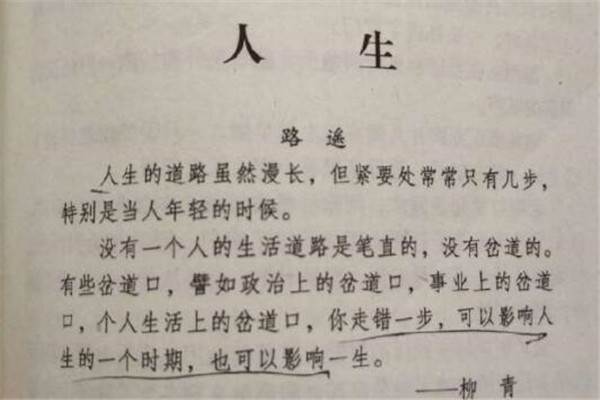 人生
路遥
人生的道路虽然漫长，但紧要处常常只有几步，
特别是当人年轻的时候。
没有一个人的生活道路是笔直的，没有岔道的。
有些岔道口，譬如政治上的岔道口，事业上的岔道
口，个人生活上的岔道口，你走错一步，可以影响人
生的一个时期，也可以影响一生。
——柳青